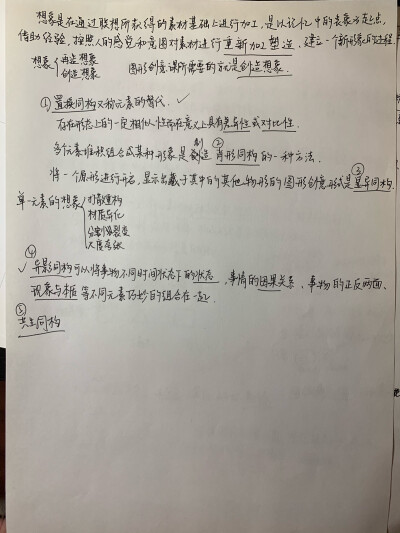 想象是在通过联想所获得的素材基础上进行加工,是以记忆中的表象为起点,
借助经验,按照人的感觉和意图对素材进行重新加工塑造、建立一个新形象的过程.
想象 再造想象
创造想象
图形创意课所需要的就是创造想象.
① 置换同构又称元素的替代. ✓
存在形态上的一定相似性而在意义上具有差异性或对比性.
多个元素堆积组合成某种形象是创造②肖形同构的一种方法.
将一个原形进行开启,显示出藏于其中的其他物形的图形创意形式是③显异同构.
单一元素的想象
切散重构
材质异化
分割及裂变
大度压缩
④
✓ 异影同构可以将事物不同时间状态下的状态,事情的因果关系、事物的正反两面、
现象与本质等不同元素巧妙的组合在一起.
⑤
共生同构